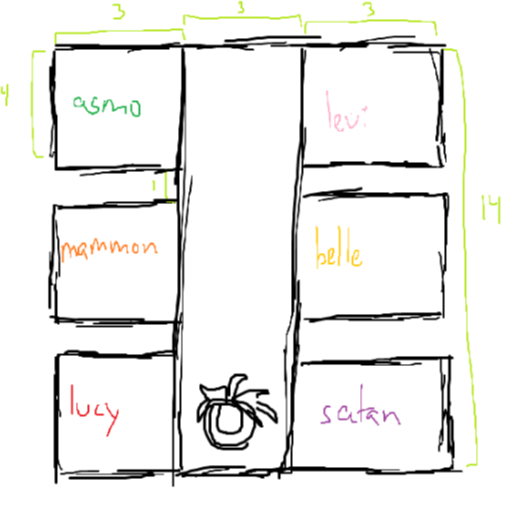 3 3 3
4
asmo levi
1
mammon belle
14
lucy satan